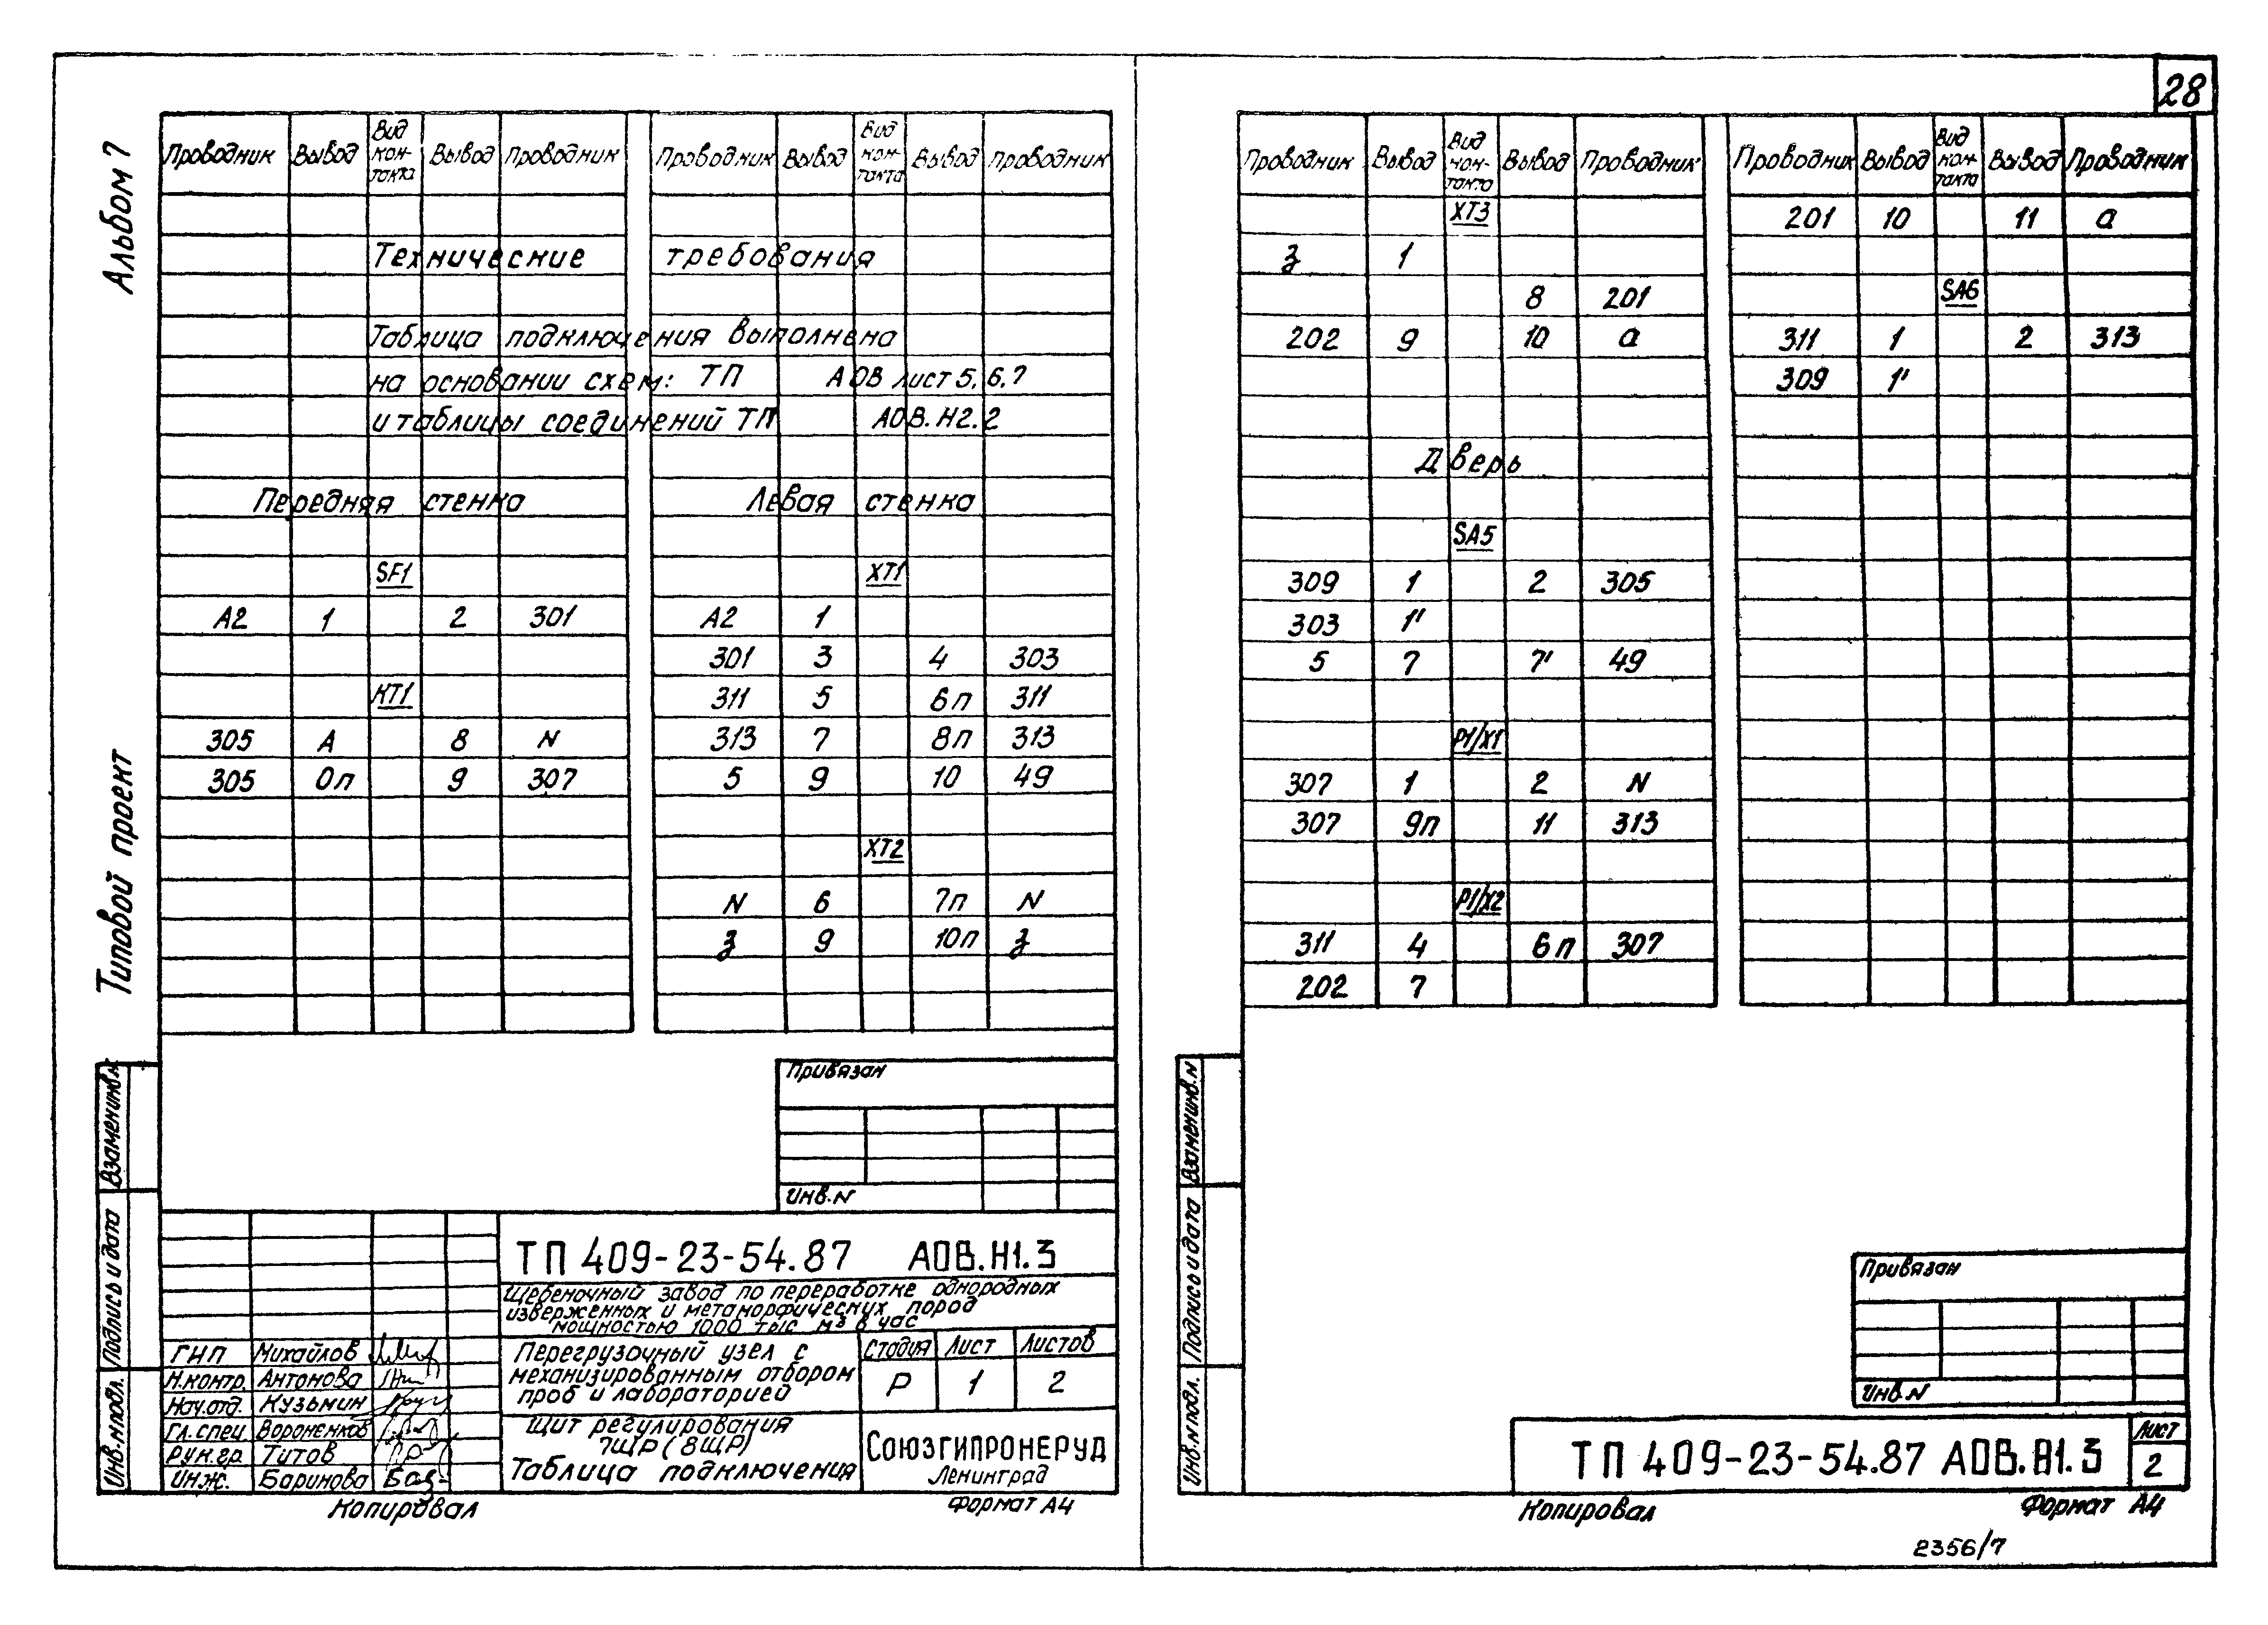 28
Альбом 7
Типовой проект
Проводник Вывод Вид контакта Вывод Проводник Проводник Вывод Вид контакта Вывод Проводник
Технические требования
Таблица подключения выполнена
на основании схем: ТП АОВ лист 5, 6, 7
и таблицы соединений ТП АОВ.Н2.2
Передняя стенка Левая стенка
SF1 XT1
А2 1 2 301 А2 1
301 3 4 303
КТ1 311 5 6п 311
305 А 8 N 313 7 8п 313
305 0п 9 307 5 9 10 49
XT2
N 6 7п N
З 9 10п З
Привязан
Инв.N
Взамен инв.N
Подпись и дата
Инв.N подл.
ТП 409-23-54.87 АОВ.Н1.3
Щебеночный завод по переработке однородных
изверженных и метаморфических пород
мощностью 1000 тыс. м3 в час
ГИП Михайлов
Н.контр. Антонова
Нач.отд. Кузьмин
Гл.спец. Вороненков
Рук.гр. Титов
Инж. Баринова
Перегрузочный узел с
механизированным отбором
проб и лабораторией
Стадия Лист Листов
Р 1 2
Щит регулирования
7ЩР (8ЩР)
Таблица подключения
СОЮЗГИПРОНЕРУД
Ленинград
Копировал Формат А4
Проводник Вывод Вид контакта Вывод Проводник Проводник Вывод Вид контакта Вывод Проводник
XT3 201 10 11 а
З 1
8 201 SA6
202 9 10 а 311 1 2 313
309 1'
Дверь
SA5
309 1 2 305
303 1'
5 7 7' 49
Р1/Х1
307 1 2 N
307 9п 11 313
Р1/Х2
311 4 6п 307
202 7
Взамен инв.N
Подпись и дата
Инв.N подл.
Привязан
Инв.N
ТП 409-23-54.87 АОВ.Н1.3
Лист
2
Копировал Формат А4
2356/7